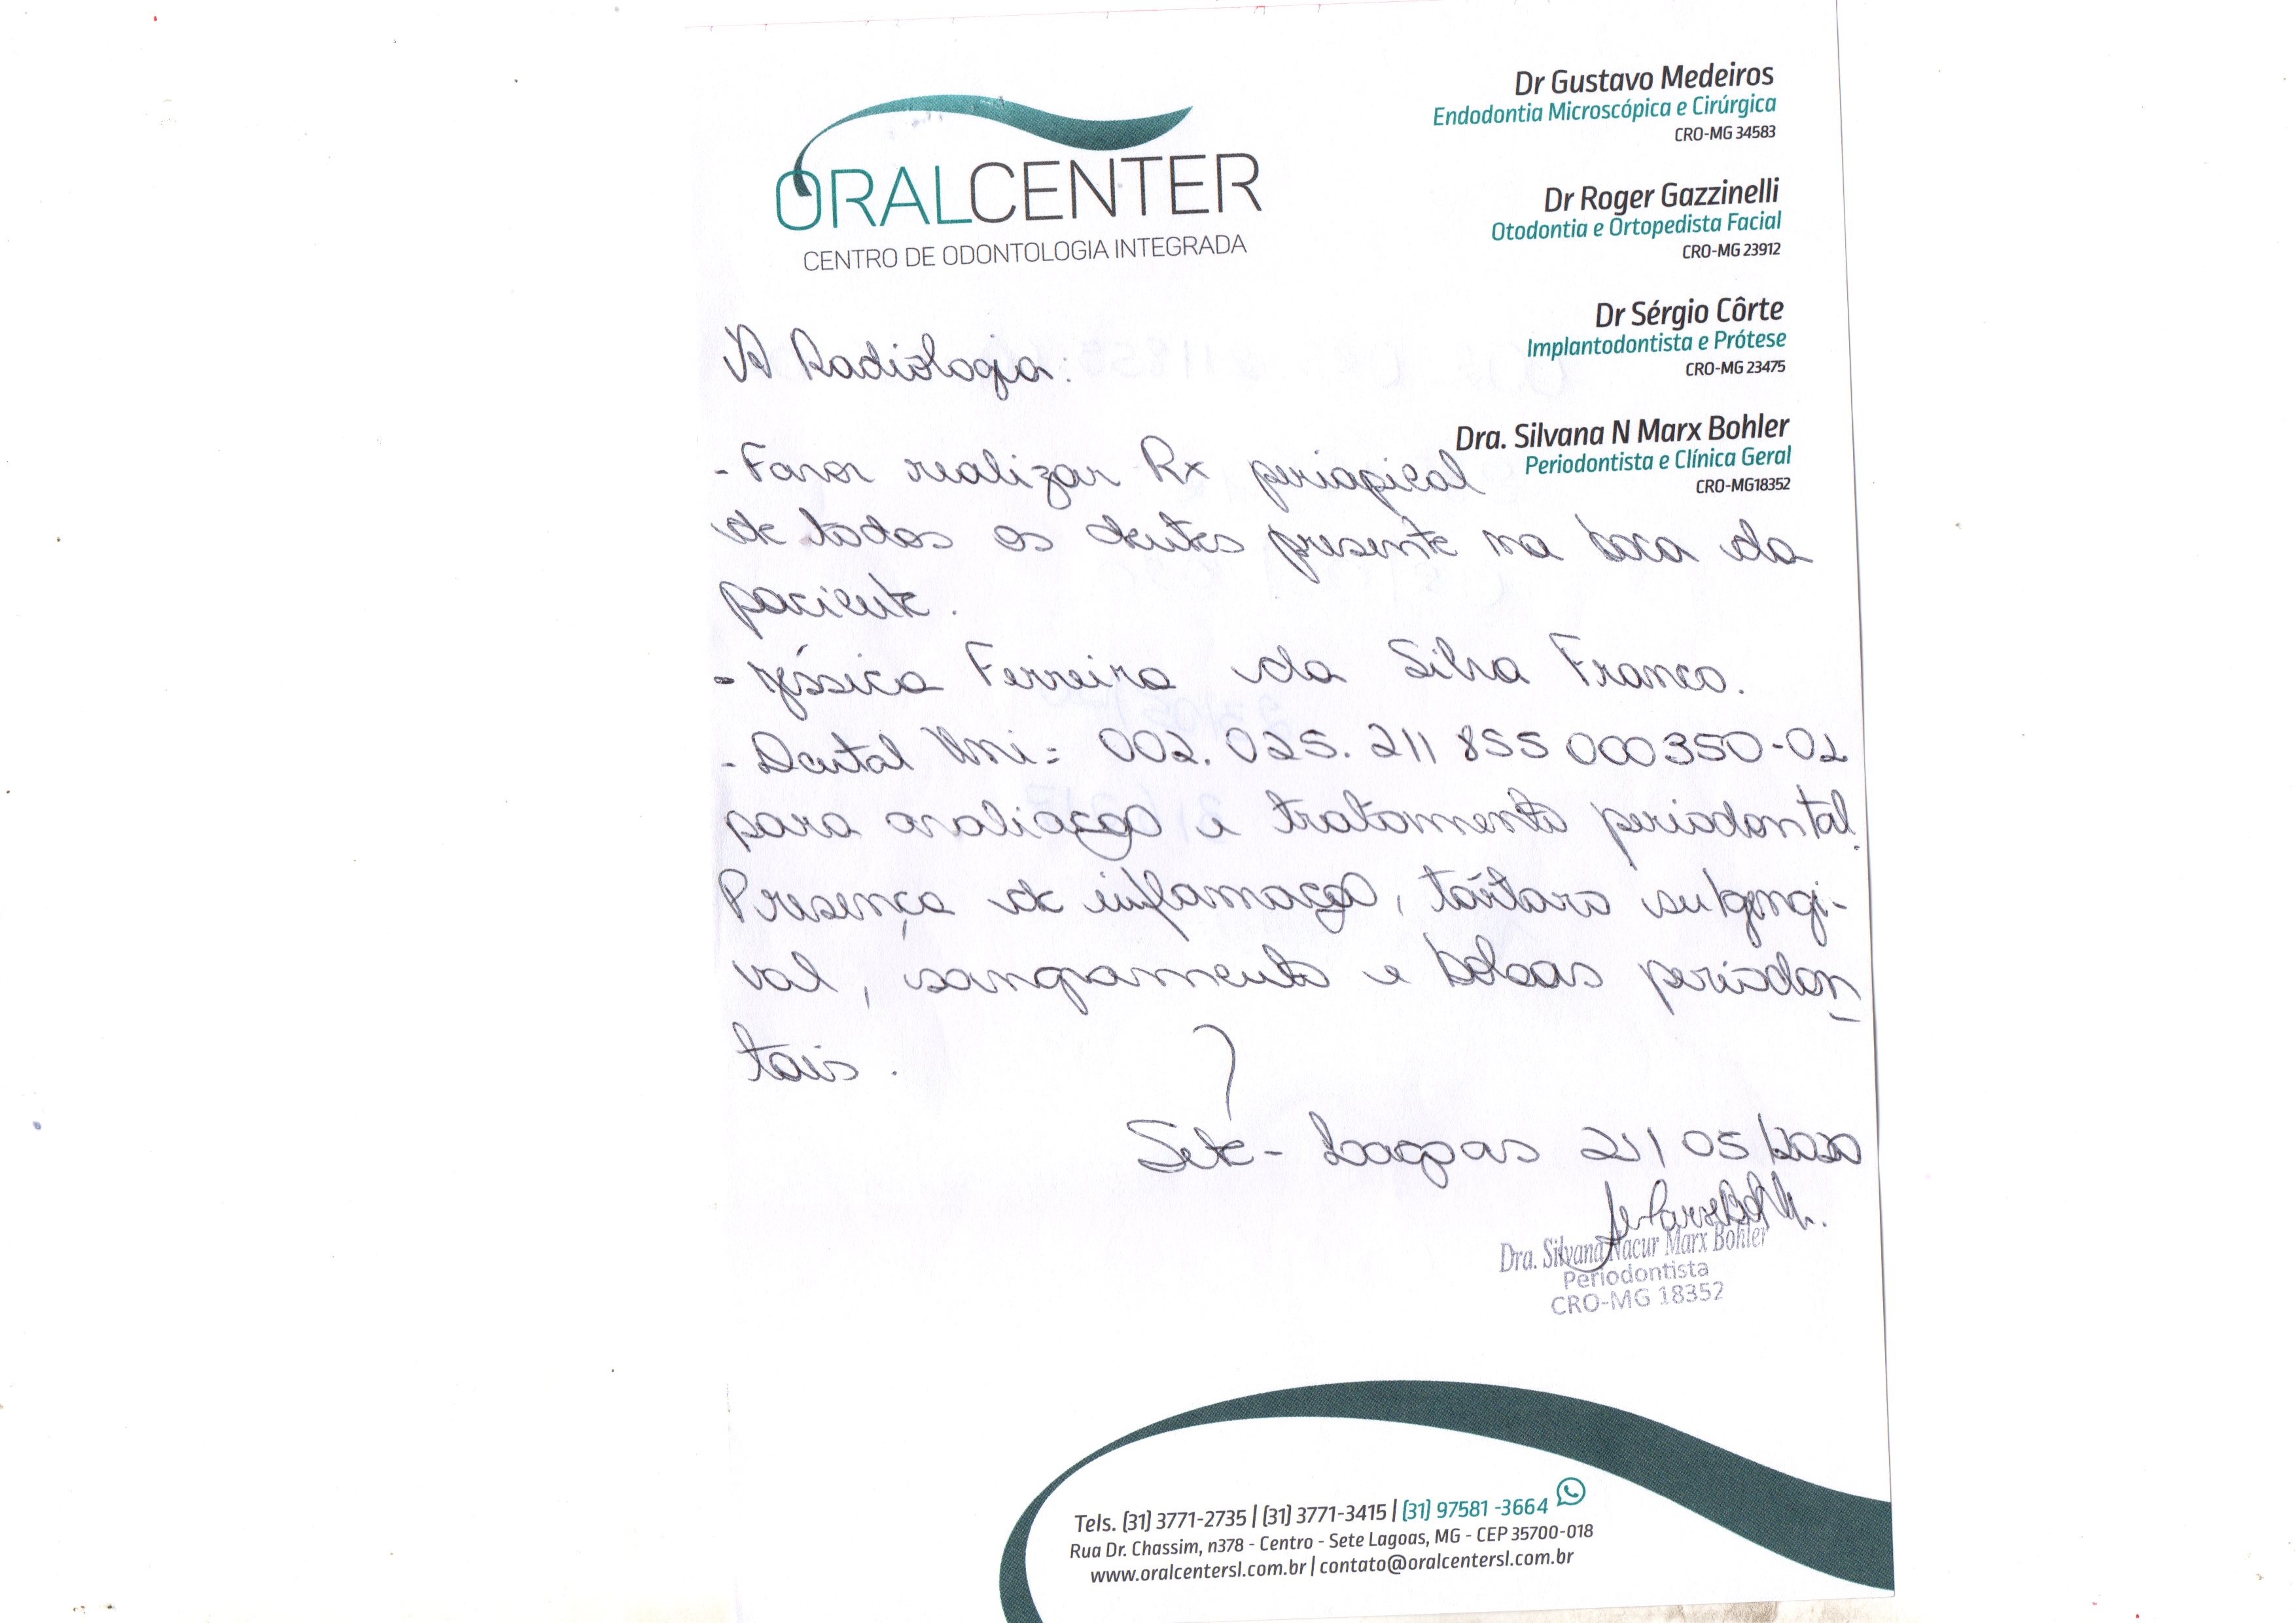 ORALCENTER
CENTRO DE ODONTOLOGIA INTEGRADA
Dr Gustavo Medeiros
Endodontia Microscópica e Cirúrgica
CRO-MG 34583
Dr Roger Gazzinelli
Otodontia e Ortopedista Facial
CRO-MG 23912
Dr Sérgio Côrte
Implantodontista e Prótese
CRO-MG 23475
Dra. Silvana N Marx Bohler
Periodontista e Clínica Geral
CRO-MG18352
À Radiologia:
- Favor realizar Rx periapical
de todos os dentes presente na boca da
paciente.
- Jéssica Ferreira da Silva Franco.
- Dental Uni: 002.025.211 855 000350-02
para avaliação e tratamento periodontal.
Presença de inflamação, tártaro subgengi-
val, sangramento e bolsas periodon
tais.
Sete-Lagoas 21/05/2020
Dra. Silvana Nacur Marx Bohler
Periodontista
CRO-MG 18352
Tels. (31) 3771-2735 | (31) 3771-3415 | (31) 97581 -3664
Rua Dr. Chassim, n378 - Centro - Sete Lagoas, MG - CEP 35700-018
www.oralcentersl.com.br | contato@oralcentersl.com.br